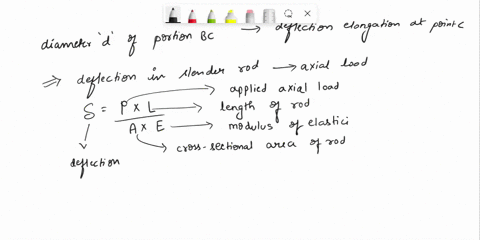 diameter 'd' of portion BC → deflection elongation at point C
⇒ deflection in slender rod → axial load
δ = P × L / A × E
→ applied axial load
→ length of rod
→ modulus of elastici
→ cross-sectional area of rod
deflection